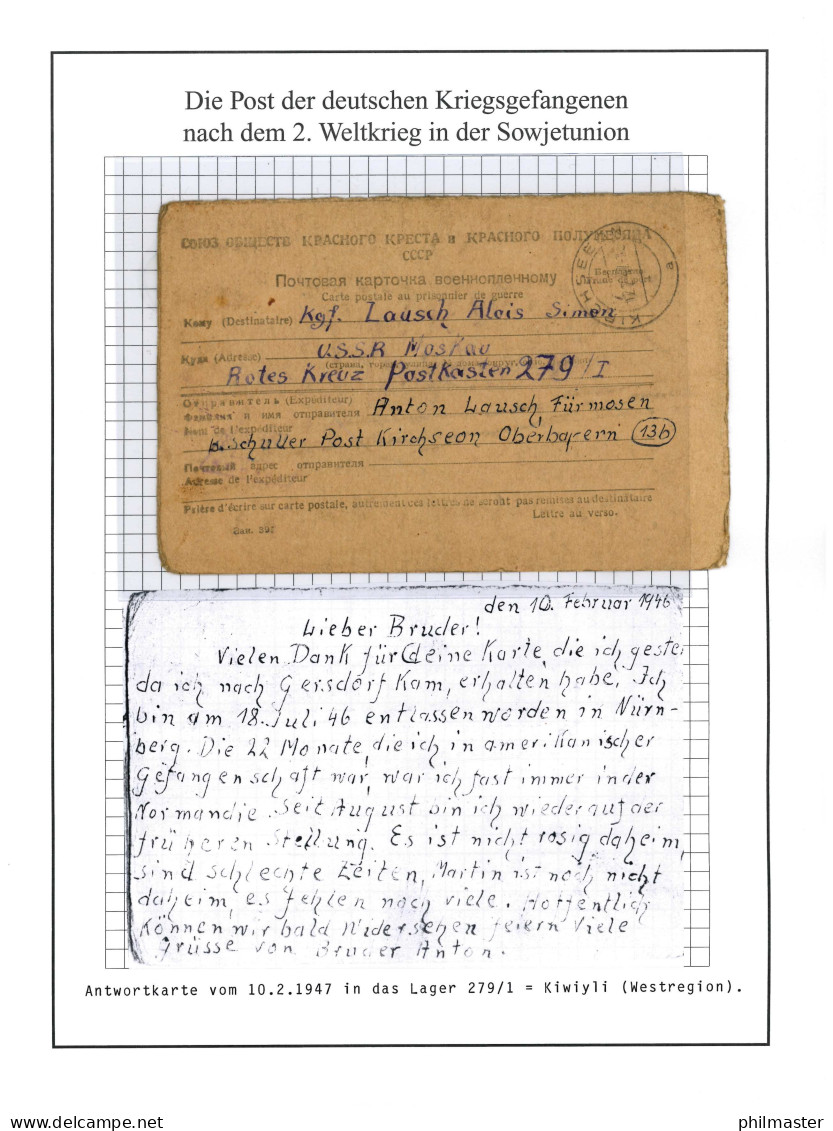 Die Post der deutschen Kriegsgefangenen
nach dem 2. Weltkrieg in der Sowjetunion
СОЮЗ ОБЩЕСТВ КРАСНОГО КРЕСТА и КРАСНОГО ПОЛУМЕСЯЦА
СССР
Почтовая карточка военнопленному
Carte postale au prisonnier de guerre
Кому (Destinataire) Kgf. Lausch Alois Simon
Куда (Adresse) U.S.S.R Moskau
Rotes Kreuz Postkasten 279/I
Отправитель (Expéditeur)
Фамилия и имя отправителя Anton Lausch Fürmosen
Nom de l'expéditeur
b. Schuller Post Kirchseon Oberbayern 13b
Почтовый адрес отправителя
Adresse de l'expéditeur
Prière d'écrire sur carte postale, autrement ces lettres ne seront pas remises au destinataire
Lettre au verso.
den 10. Februar 1946
Lieber Bruder!
Vielen Dank für deine Karte, die ich gester
da ich nach Gersdorf kam, erhalten habe. Ich
bin am 18. Juli 46 entlassen worden in Nürn-
berg. Die 22 Monate, die ich in amerikanischer
Gefangenschaft war, war ich fast immer in der
Normandie. Seit August bin ich wieder auf der
früheren Stellung. Es ist nicht rosig daheim,
sind schlechte Zeiten, Martin ist noch nicht
daheim, es fehlen noch viele. Hoffentlich
können wir bald Widersehen feiern Viele
Grüsse von Bruder Anton.
Antwortkarte vom 10.2.1947 in das Lager 279/1 = Kiwiyli (Westregion).
www.delcampe.net
philmaster